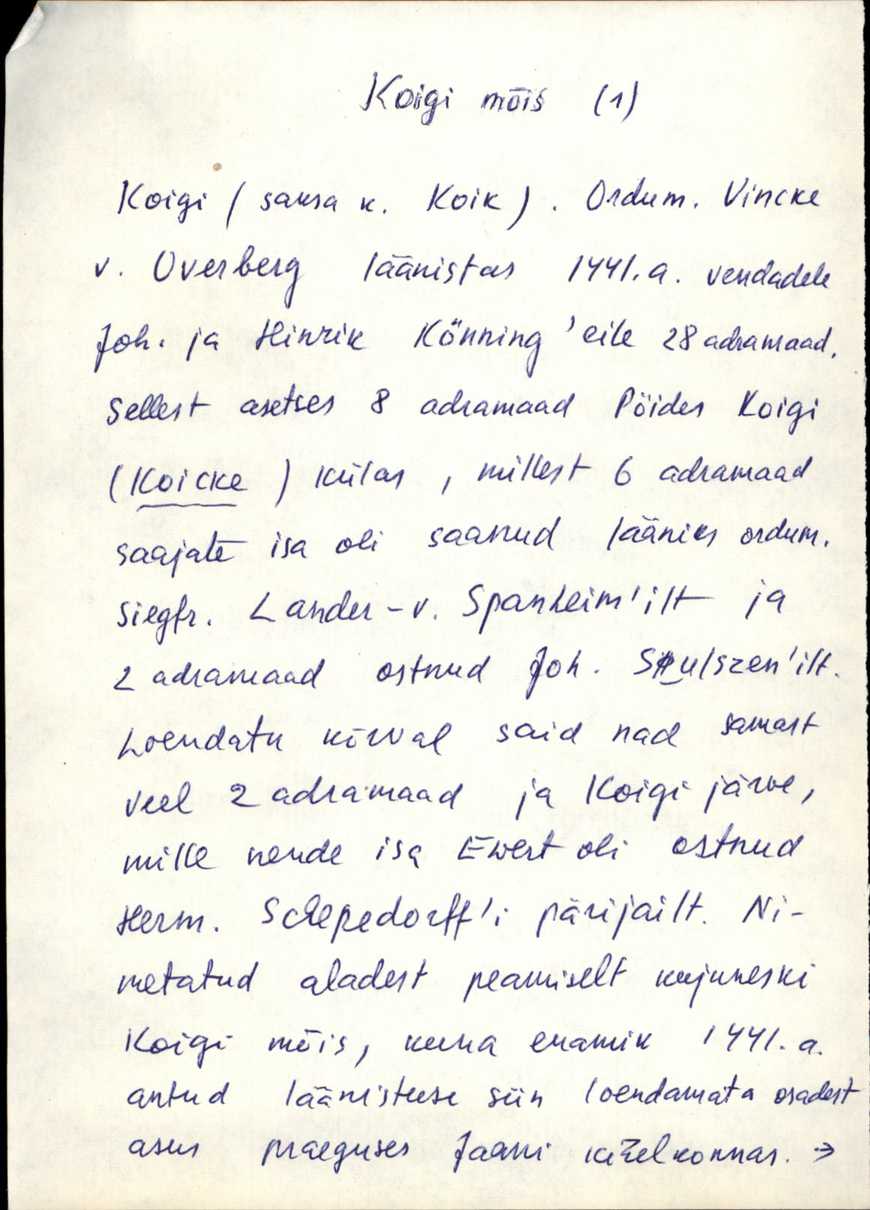 Koigi mõis (1)
Koigi (saksa k. Koik). Ordum. Vincke
v. Overberg läänistas 1441.a. vendadele
Joh. ja Hinrik Könning'eile 28 adramaad.
Sellest asetses 8 adramaad Pöides Koigi
(Koicke) külas, millest 6 adramaad
saajate isa oli saanud lääniks ordum.
Siegfr. Lander-v. Spanheim'ilt ja
2 adramaad ostnud Joh. Sculszen'ilt.
Loendatu kõrval said nad samast
veel 2 adramaad ja Koigi järve,
mille nende isa Ewert oli ostnud
Herm. Schepedorff'i pärijailt. Ni-
metatud aladest peamiselt kujuneski
Koigi mõis, kuna enamik 1441.a.
antud läänistuse siin loendamata osadest
asus praeguses Jaani kihelkonnas. →